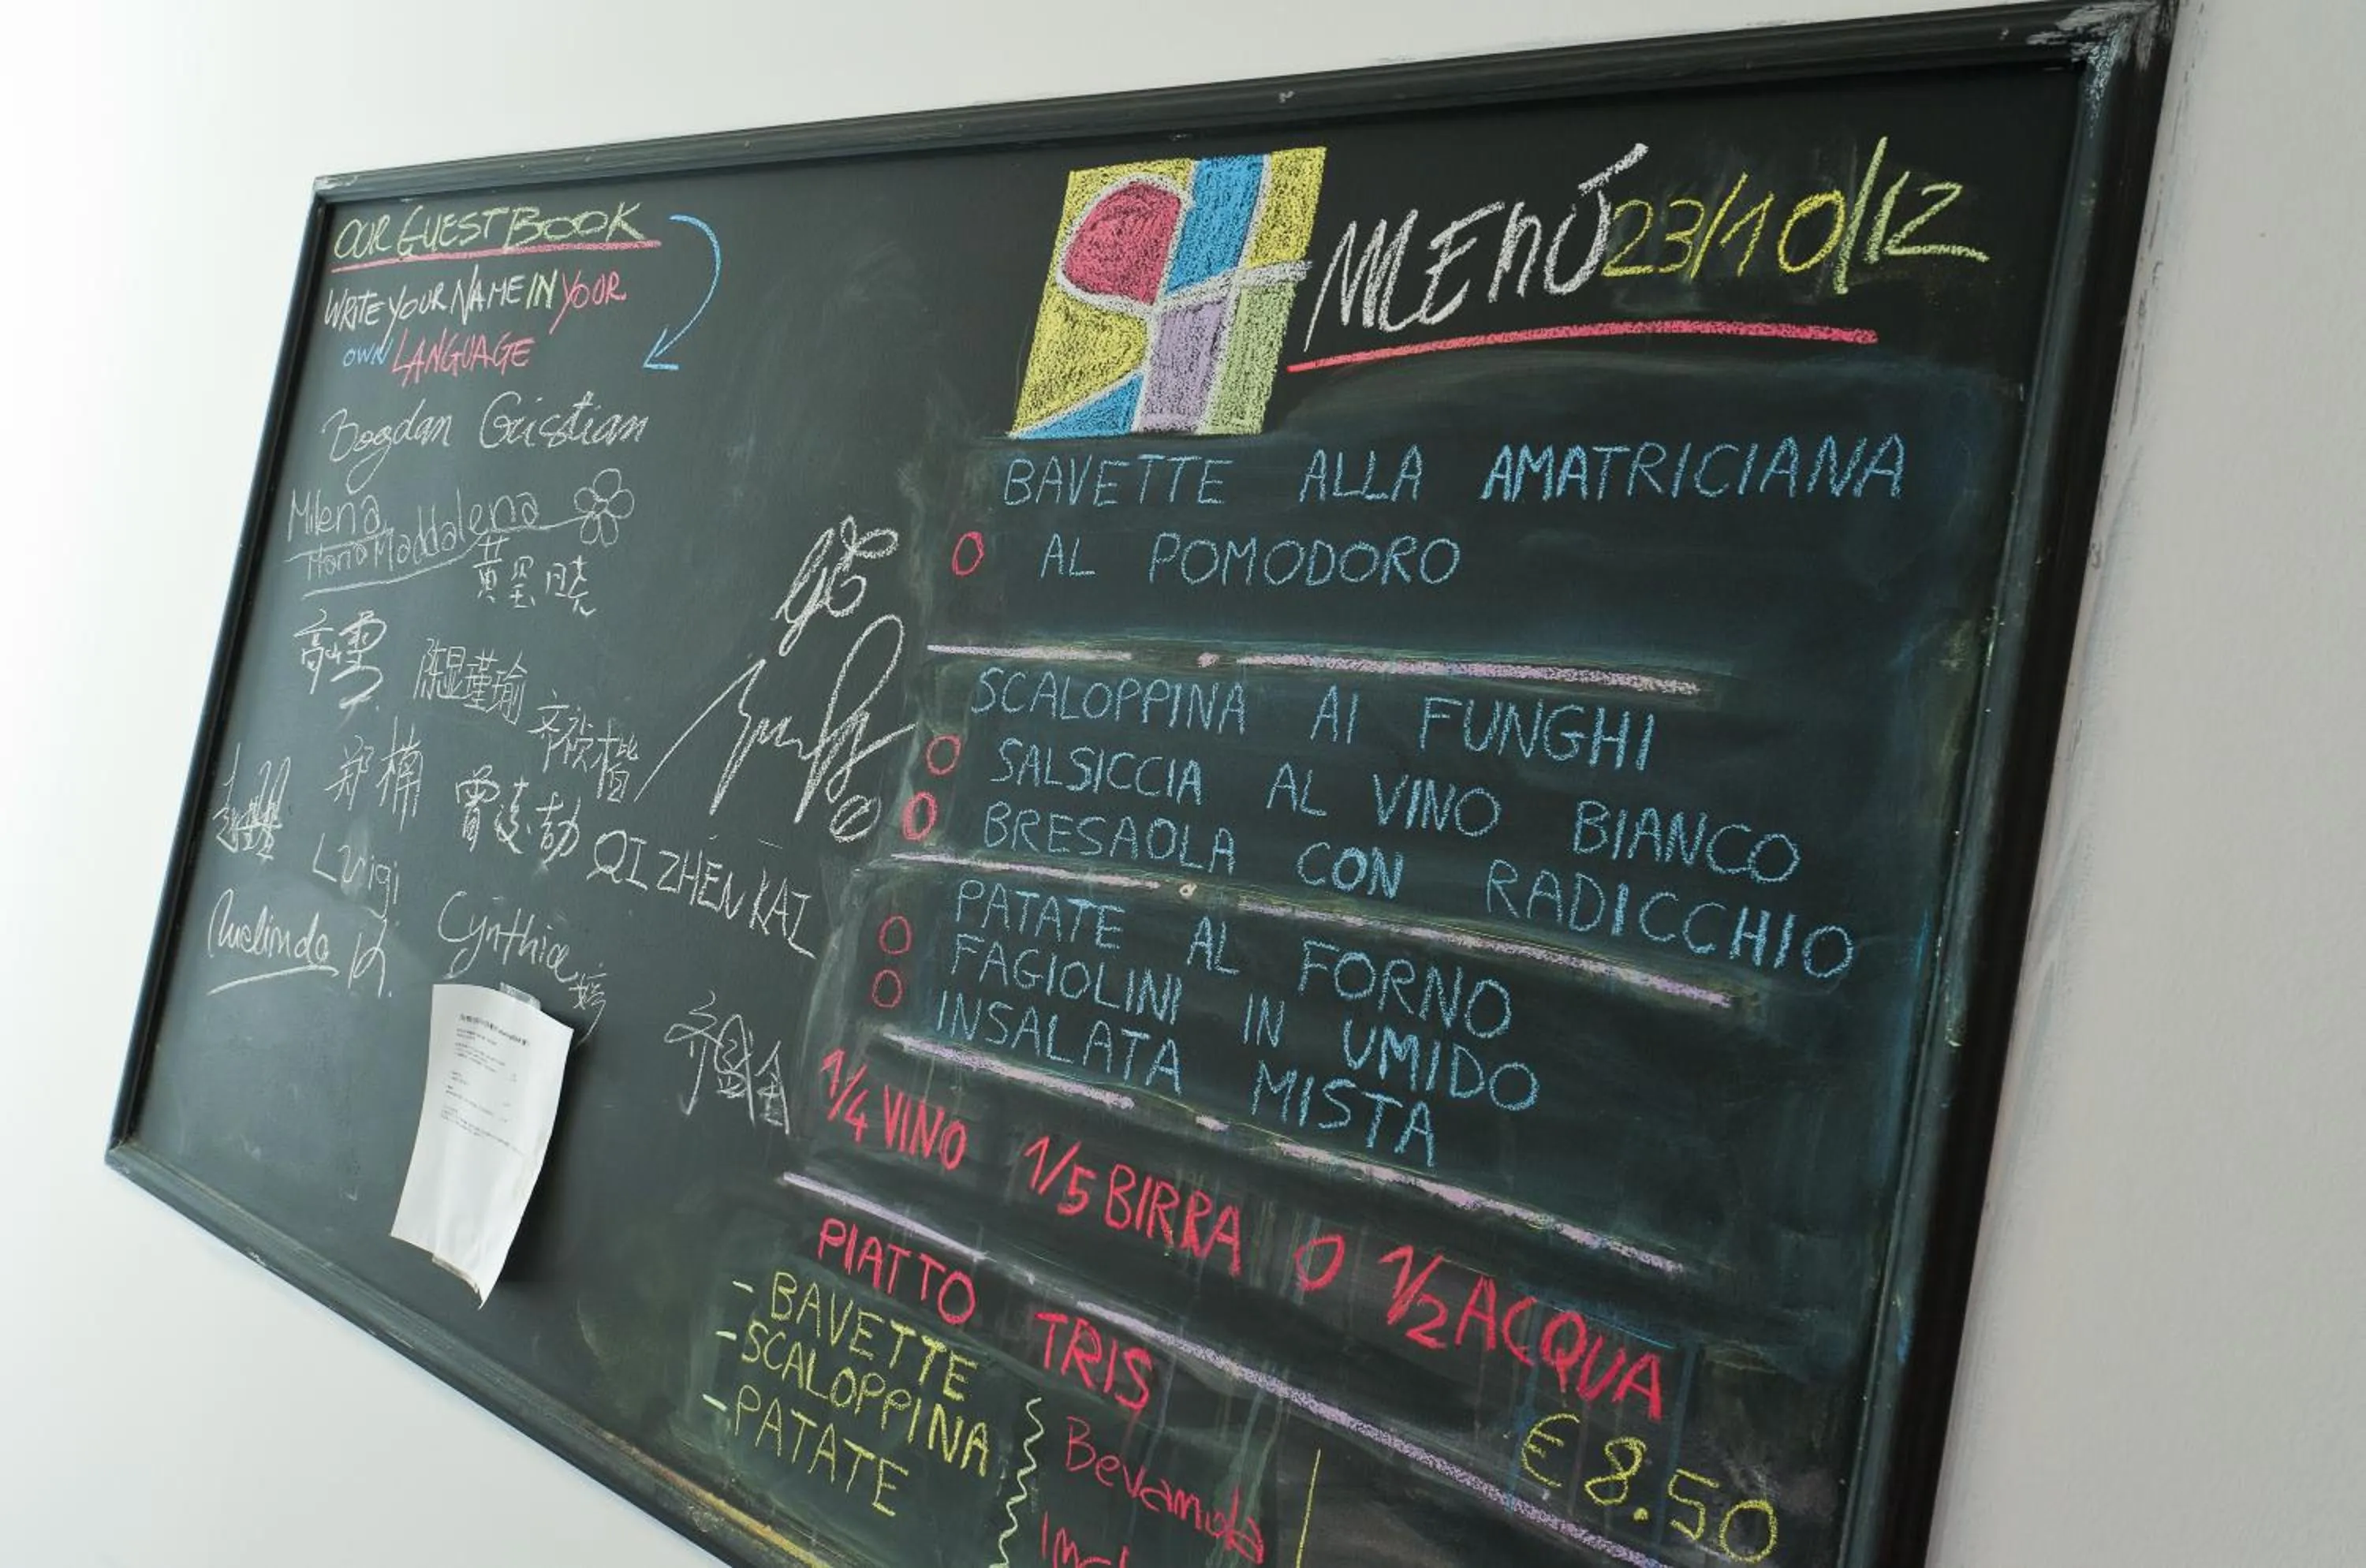 OUR GUEST BOOK
WRITE YOUR NAME IN YOUR
OWN LANGUAGE
Bogdan Cristian
Milena
Maria Maddalena
黄星晓
高雪
陈显瑾瑜
齐祯楷
郑楠
曾志劼
QI ZHEN KAI
Luigi
Cynthia
婷
MENÙ 23/10/12
BAVETTE ALLA AMATRICIANA
O AL POMODORO
SCALOPPINA AI FUNGHI
O SALSICCIA AL VINO BIANCO
O BRESAOLA CON RADICCHIO
PATATE AL FORNO
O FAGIOLINI IN UMIDO
O INSALATA MISTA
1/4 VINO 1/5 BIRRA O 1/2 ACQUA
PIATTO TRIS
- BAVETTE
- SCALOPPINA
- PATATE
Bevanda
€ 8.50